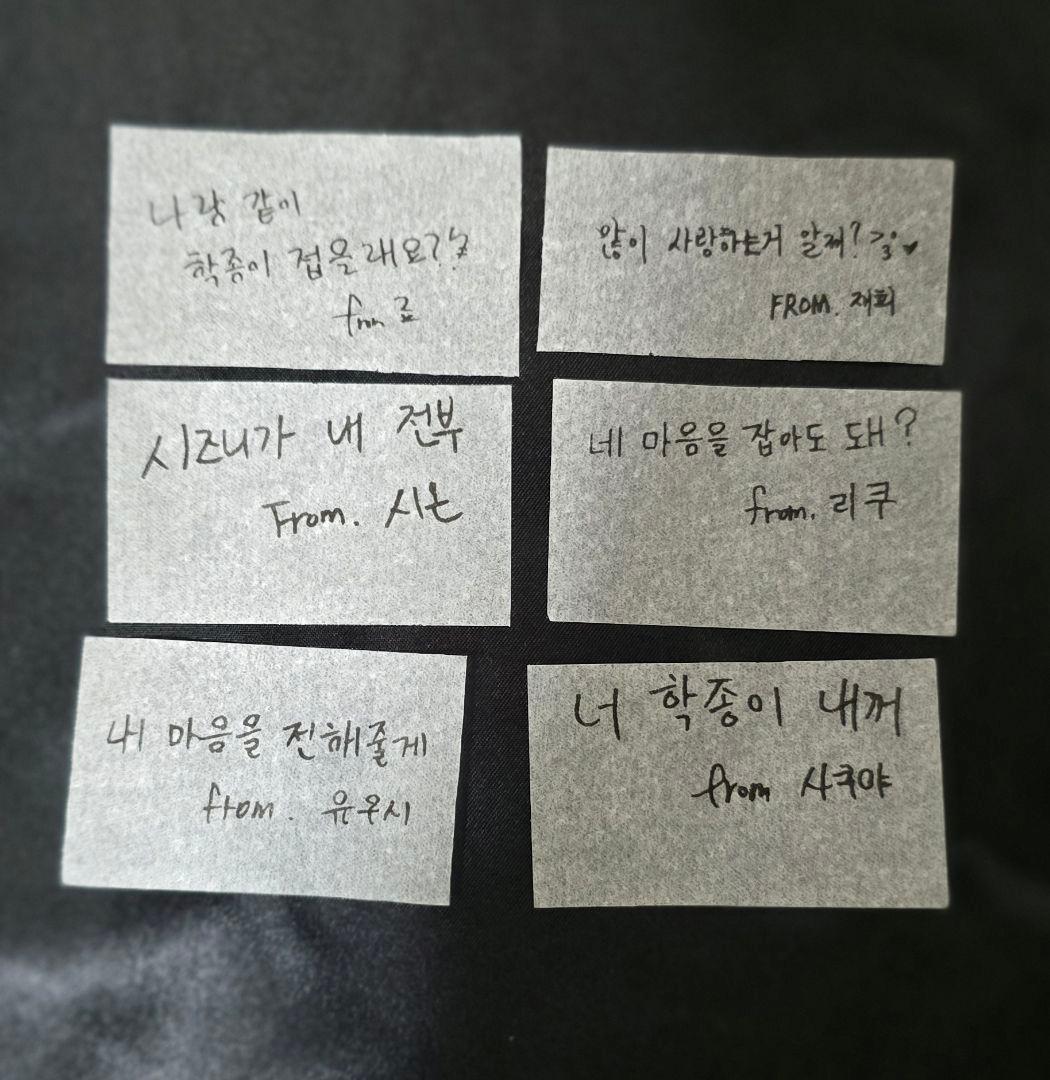 나랑 같이
학종이 접을래요??
from 료
많이 사랑하는거 알제? >3< ♥
FROM. 재희
시즈니가 내 전부
From. 시온
네 마음을 잡아도 돼?
from. 리쿠
내 마음을 전해줄게
from. 유우시
너 학종이 내꺼
from 사쿠야